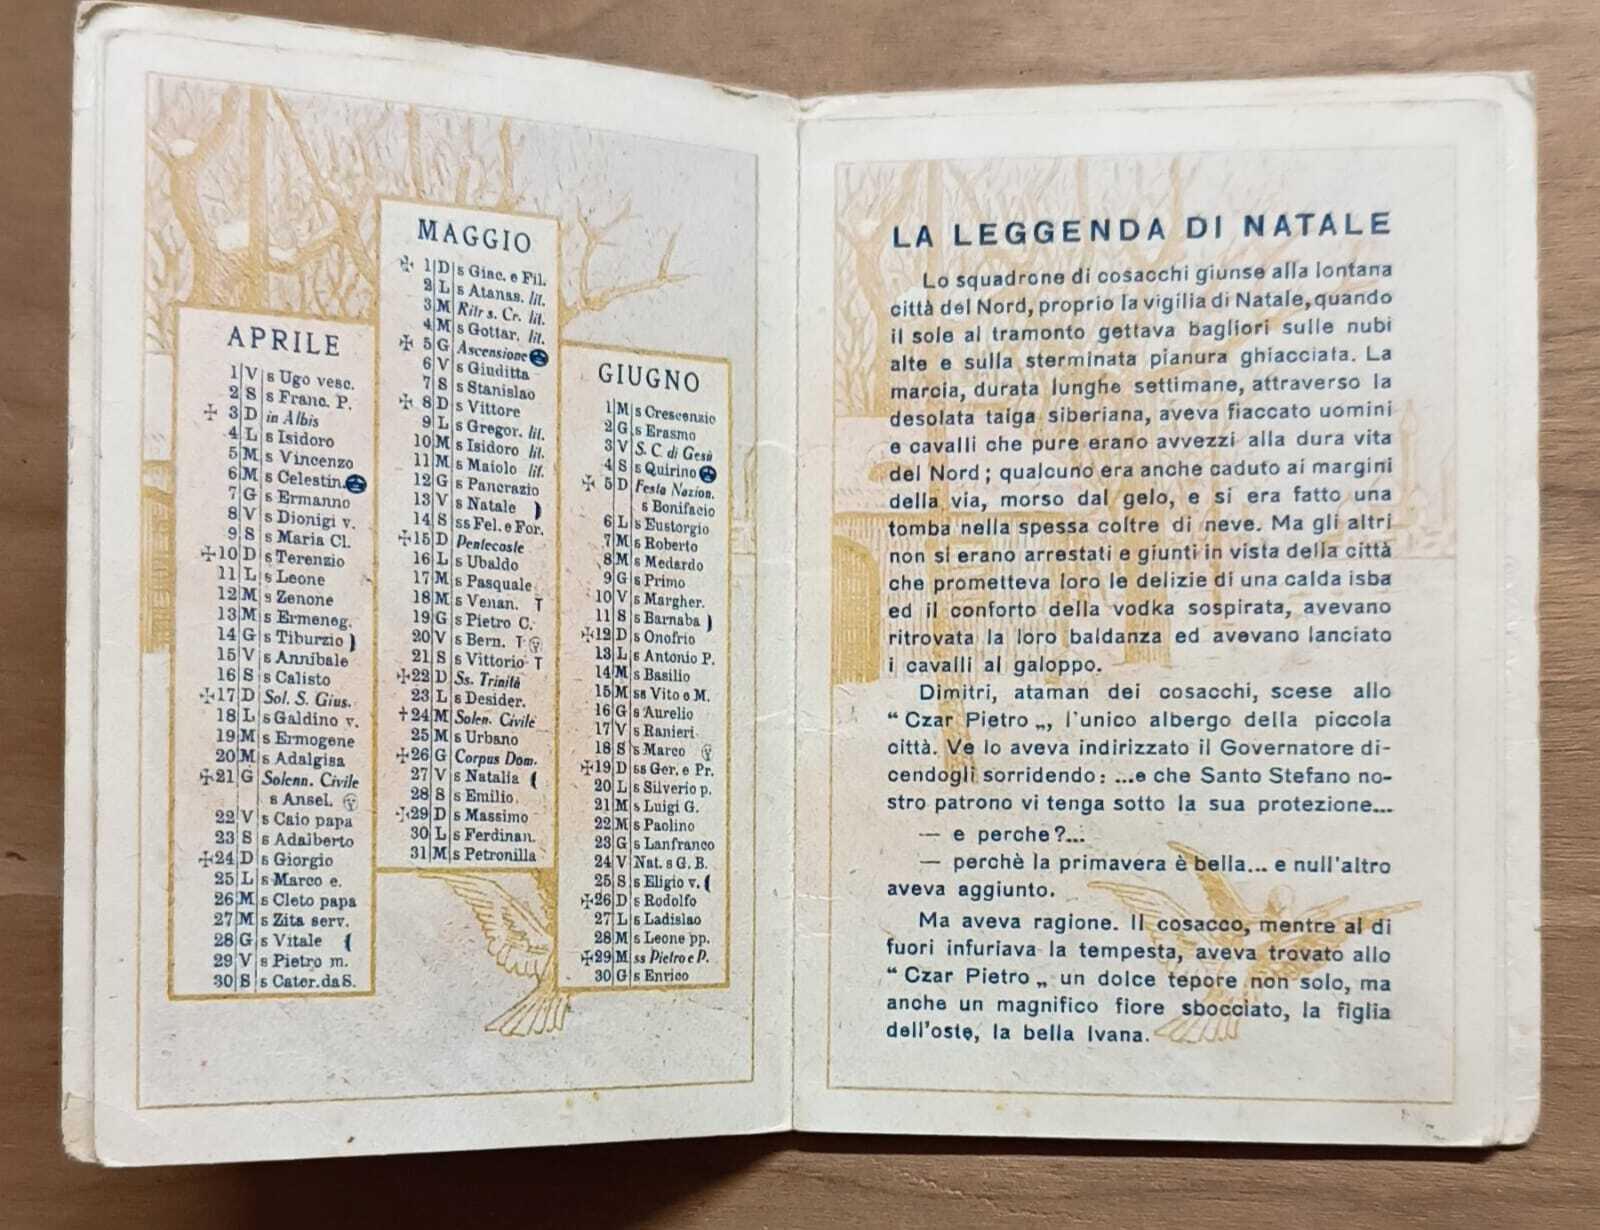 APRILE
1 V s Ugo vesc.
2 S s Franc. P.
✠ 3 D in Albis
4 L s Isidoro
5 M s Vincenzo
6 M s Celestin.
7 G s Ermanno
8 V s Dionigi v.
9 S s Maria Cl.
✠10 D s Terenzio
11 L s Leone
12 M s Zenone
13 M s Ermeneg.
14 G s Tiburzio
15 V s Annibale
16 S s Calisto
✠17 D Sol. S. Gius.
18 L s Galdino v.
19 M s Ermogene
20 M s Adalgisa
✠21 G Solenn. Civile
s Ansel.
22 V s Caio papa
23 S s Adalberto
✠24 D s Giorgio
25 L s Marco e.
26 M s Cleto papa
27 M s Zita serv.
28 G s Vitale
29 V s Pietro m.
30 S s Cater. da S.
MAGGIO
✠ 1 D s Giac. e Fil.
2 L s Atanas. lit.
3 M Ritr s. Cr. lit.
4 M s Gottar. lit.
✠ 5 G Ascensione
6 V s Giuditta
7 S s Stanislao
✠ 8 D s Vittore
9 L s Gregor. lit.
10 M s Isidoro lit.
11 M s Maiolo lit.
12 G s Pancrazio
13 V s Natale
14 S ss Fel. e For.
✠15 D Pentecoste
16 L s Ubaldo
17 M s Pasquale
18 M s Venan. T
19 G s Pietro C.
20 V s Bern. T
21 S s Vittorio T
✠22 D Ss. Trinità
23 L s Desider.
✝24 M Solen. Civile
25 M s Urbano
✠26 G Corpus Dom.
27 V s Natalia
28 S s Emilio
✠29 D s Massimo
30 L s Ferdinan.
31 M s Petronilla
GIUGNO
1 M s Crescenzio
2 G s Erasmo
3 V S. C. di Gesù
4 S s Quirino
✠ 5 D Festa Nazion.
s Bonifacio
6 L s Eustorgio
7 M s Roberto
8 M s Medardo
9 G s Primo
10 V s Margher.
11 S s Barnaba
✠12 D s Onofrio
13 L s Antonio P.
14 M s Basilio
15 M ss Vito e M.
16 G s Aurelio
17 V s Ranieri
18 S s Marco
✠19 D ss Ger. e Pr.
20 L s Silverio p.
21 M s Luigi G.
22 M s Paolino
23 G s Lanfranco
24 V Nat. s G. B.
25 S s Eligio v.
✠26 D s Rodolfo
27 L s Ladislao
28 M s Leone pp.
✠29 M ss Pietro e P.
30 G s Enrico
LA LEGGENDA DI NATALE
Lo squadrone di cosacchi giunse alla lontana
città del Nord, proprio la vigilia di Natale, quando
il sole al tramonto gettava bagliori sulle nubi
alte e sulla sterminata pianura ghiacciata. La
marcia, durata lunghe settimane, attraverso la
desolata taiga siberiana, aveva fiaccato uomini
e cavalli che pure erano avvezzi alla dura vita
del Nord; qualcuno era anche caduto ai margini
della via, morso dal gelo, e si era fatto una
tomba nella spessa coltre di neve. Ma gli altri
non si erano arrestati e giunti in vista della città
che prometteva loro le delizie di una calda isba
ed il conforto della vodka sospirata, avevano
ritrovata la loro baldanza ed avevano lanciato
i cavalli al galoppo.
Dimitri, ataman dei cosacchi, scese allo
“Czar Pietro„, l'unico albergo della piccola
città. Ve lo aveva indirizzato il Governatore di-
cendogli sorridendo: ...e che Santo Stefano no-
stro patrono vi tenga sotto la sua protezione...
— e perche?...
— perchè la primavera è bella... e null'altro
aveva aggiunto.
Ma aveva ragione. Il cosacco, mentre al di
fuori infuriava la tempesta, aveva trovato allo
“Czar Pietro„ un dolce tepore non solo, ma
anche un magnifico fiore sbocciato, la figlia
dell'oste, la bella Ivana.